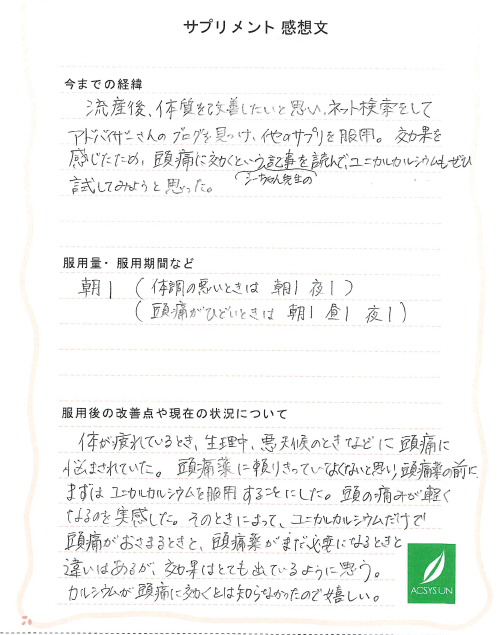 サプリメント 感想文
今までの経緯
流産後、体質を改善したいと思い、ネット検索をして
アドバイザーさんのブログを見つけ、他のサプリを服用。効果を
感じたため、頭痛に効くという記事を読んで、ユニカルカルシウムもぜひ
シーちゃん先生の
試してみようと思った。
服用量・服用期間など
朝1 (体調の悪いときは 朝1 夜1)
(頭痛がひどいときは 朝1 昼1 夜1)
服用後の改善点や現在の状況について
体が疲れているとき、生理中、悪天候のときなどに頭痛に
悩まされていた。頭痛薬に頼りきっていてはよくないと思い、頭痛薬の前に
まずはユニカルカルシウムを服用することにした。頭の痛みが軽く
なるのを実感した。そのときによって、ユニカルカルシウムだけで
頭痛がおさまるときと、頭痛薬がまだ必要になるときと
違いはあるが、効果はとても出ているように思う。
カルシウムが頭痛に効くとは知らなかったので嬉しい。
ACSYSUN